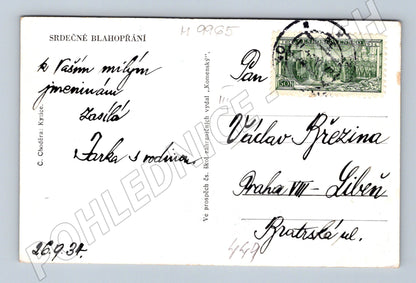 SRDEČNÉ BLAHOPŘÁNÍ
M 9965
k Vašim milým
jmeninám
zasílá
Jarka s rodinou
26.9.34.
C. Choděra: Kytice.
Ve prospěch čs. škol zahraničních vydal „Komenský“.
Pan
Václav Březina
Praha VIII - Libeň
Bratrská ul.
449
50h
POHLEDNICE